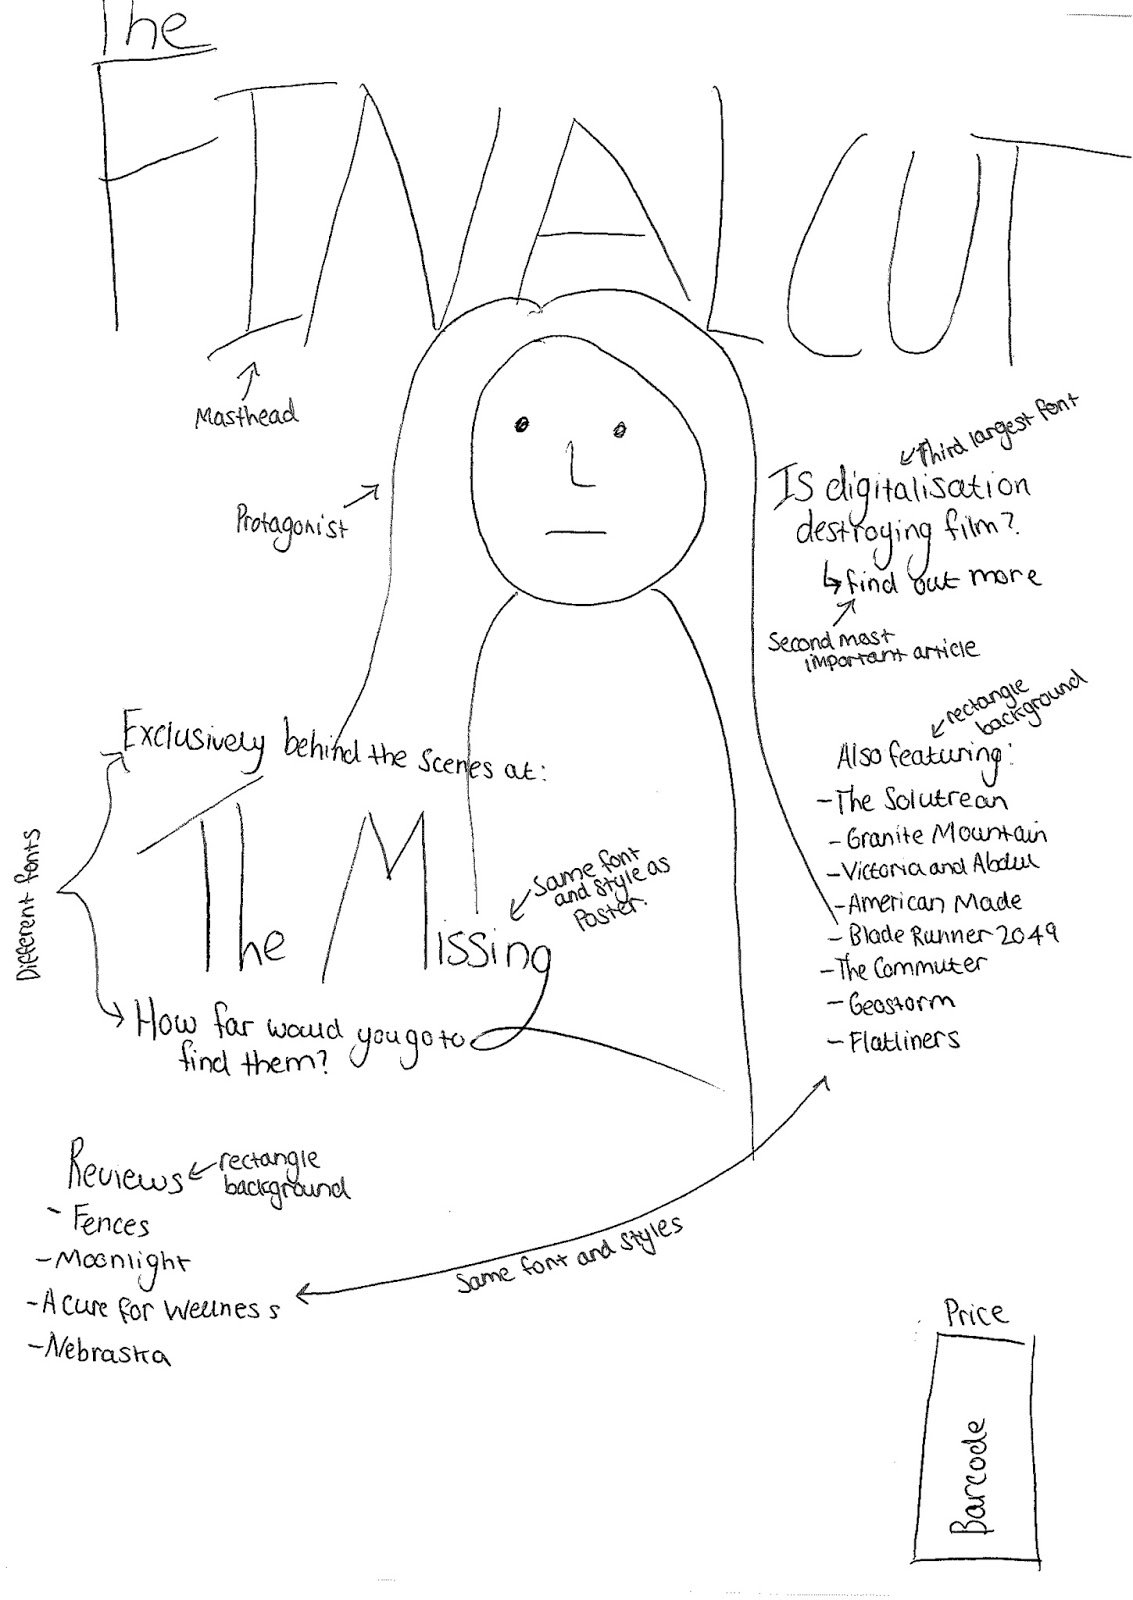 The
FINAL CUT
Masthead
Protagonist
Third largest font
Is digitalisation
destroying film?
find out more
Second most
important article
rectangle
background
Also featuring:
- The Solutrean
- Granite Mountain
- Victoria and Abdul
- American Made
- Blade Runner 2049
- The Commuter
- Geostorm
- Flatliners
Exclusively behind the scenes at:
The Missing
Same font
and style as
Poster.
Different fonts
How far would you go to
find them?
Reviews
rectangle
background
- Fences
- Moonlight
- A cure for Wellness
- Nebraska
Same font and styles
Price
Barcode